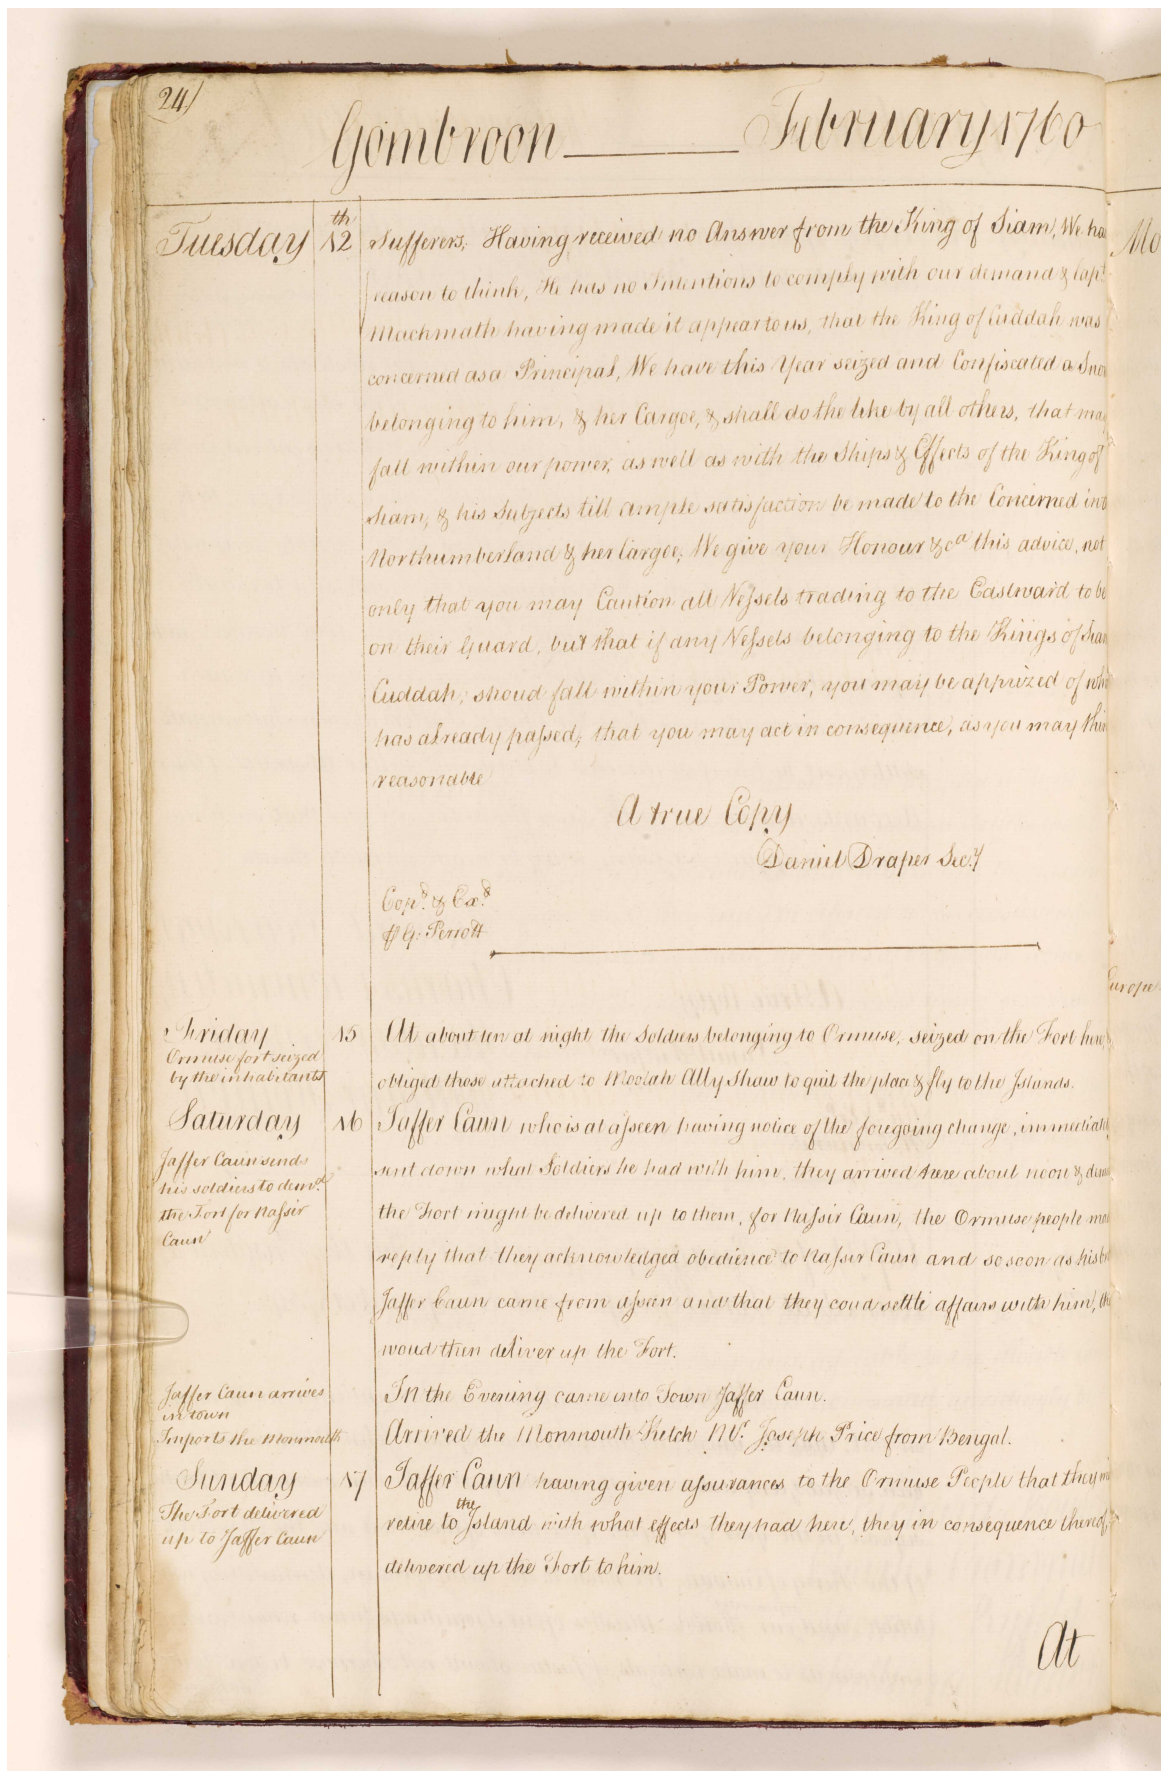 24/
Gombroon February 1760
Tuesday 12th Sufferers; Having received no Answer from the King of Siam, We ha
reason to think, He has no Intentions to comply with our demand & Capt.
Mackmath having made it appear to us, that the King of Cuddah was
concerned as a Principal, We have this Year seized and Confiscated a Snow
belonging to him, & her Cargoe, & shall do the like by all others, that may
fall within our power, as well as with the Ships & Effects of the King of
Siam, & his Subjects till ample satisfaction be made to the Concerned in
Northumberland & her Cargoe; We give your Honour &ca this advice, not
only that you may Caution all Vessels trading to the Eastward to be
on their Guard, but that if any Vessels belonging to the Kings of Siam
Cuddah, shoud fall within your Power, you may be apprized of wh
has already passed; that you may act in consequence, as you may thin
reasonable
A true Copy
Daniel Draper Secy
Copd. & Exd.
G: Perrott
Friday 15 At about ten at night the Soldiers belonging to Ormuse, seized on the Fort here,
Ormuse fort seized
by the inhabitants
obliged those attached to Moolah Ally Shaw to quit the place & fly to the Islands.
Saturday 16 Jaffer Caun who is at Asseen having notice of the foregoing change, immediatel
Jaffer Caun sends
his soldiers to demd.
the Fort for Nassir
Caun
sent down what Soldiers he had with him, they arrived here about noon & dem
the Fort might be delivered up to them, for Nassir Caun, the Ormuse people ma
reply that they acknowledged obedience to Nassir Caun and so soon as his b
Jaffer Caun came from Asseen and that they coud settle affairs with him, th
woud then deliver up the Fort.
Jaffer Caun arrives
in town
In the Evening came into Town Jaffer Caun.
Imports the Monmouth
Arrived the Monmouth Ketch Mr. Joseph Price from Bengal.
Sunday 17 Jaffer Caun having given assurances to the Ormuse People that they mi
The Fort delivered
up to Jaffer Caun
retire to the Island with what effects they had here, they in consequence thereof,
delivered up the Fort to him.
At
Mo
Europe